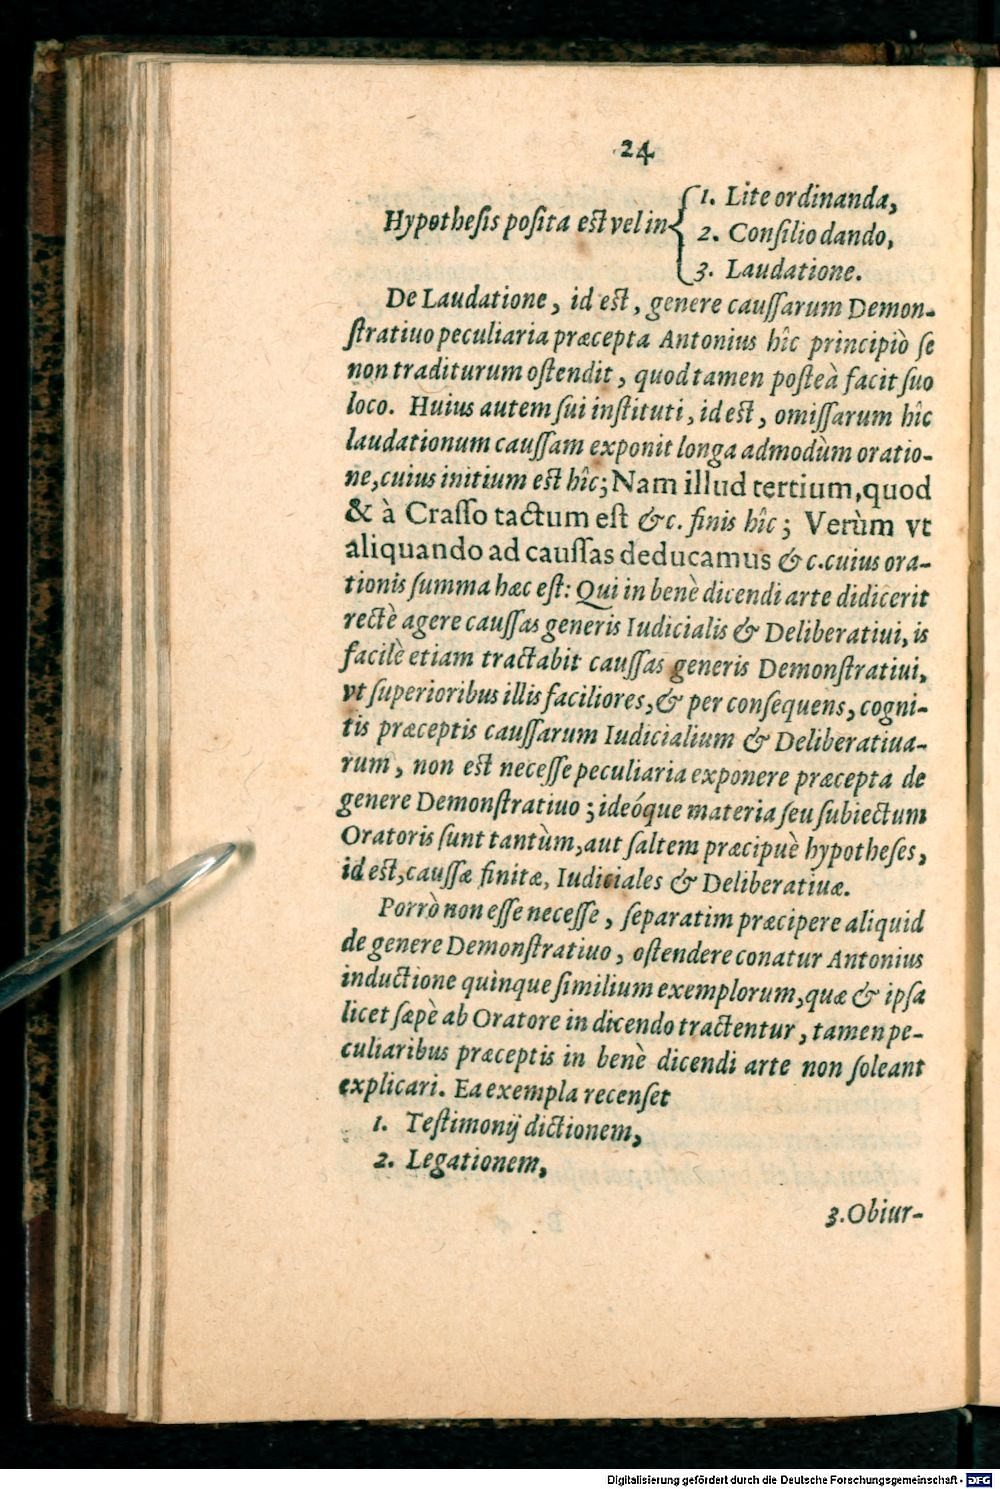 24
Hypothesis posita est vel in { 1. Lite ordinanda,
2. Consilio dando,
3. Laudatione.
De Laudatione, id est, genere caussarum Demon-
stratiuo peculiaria præcepta Antonius hîc principiò se
non traditurum ostendit, quod tamen posteà facit suo
loco. Huius autem sui instituti, id est, omissarum hîc
laudationum caussam exponit longa admodùm oratio-
ne, cuius initium est hîc; Nam illud tertium, quod
& à Crasso tactum est &c. finis hîc; Verùm vt
aliquando ad caussas deducamus &c. cuius ora-
tionis summa hæc est: Qui in benè dicendi arte didicerit
rectè agere caussas generis Iudicialis & Deliberatiui, is
facilè etiam tractabit caussas generis Demonstratiui,
vt superioribus illis faciliores, & per consequens, cogni-
tis præceptis caussarum Iudicialium & Deliberatiua-
rum, non est necesse peculiaria exponere præcepta de
genere Demonstratiuo; ideóque materia seu subiectum
Oratoris sunt tantùm, aut saltem præcipuè hypotheses,
id est, caussæ finitæ, Iudiciales & Deliberatiuæ.
Porrò non esse necesse, separatim præcipere aliquid
de genere Demonstratiuo, ostendere conatur Antonius
inductione quinque similium exemplorum, quæ & ipsa
licet sæpè ab Oratore in dicendo tractentur, tamen pe-
culiaribus præceptis in benè dicendi arte non soleant
explicari. Ea exempla recenset
1. Testimonij dictionem,
2. Legationem,
3. Obiur-
Digitalisierung gefördert durch die Deutsche Forschungsgemeinschaft - DFG